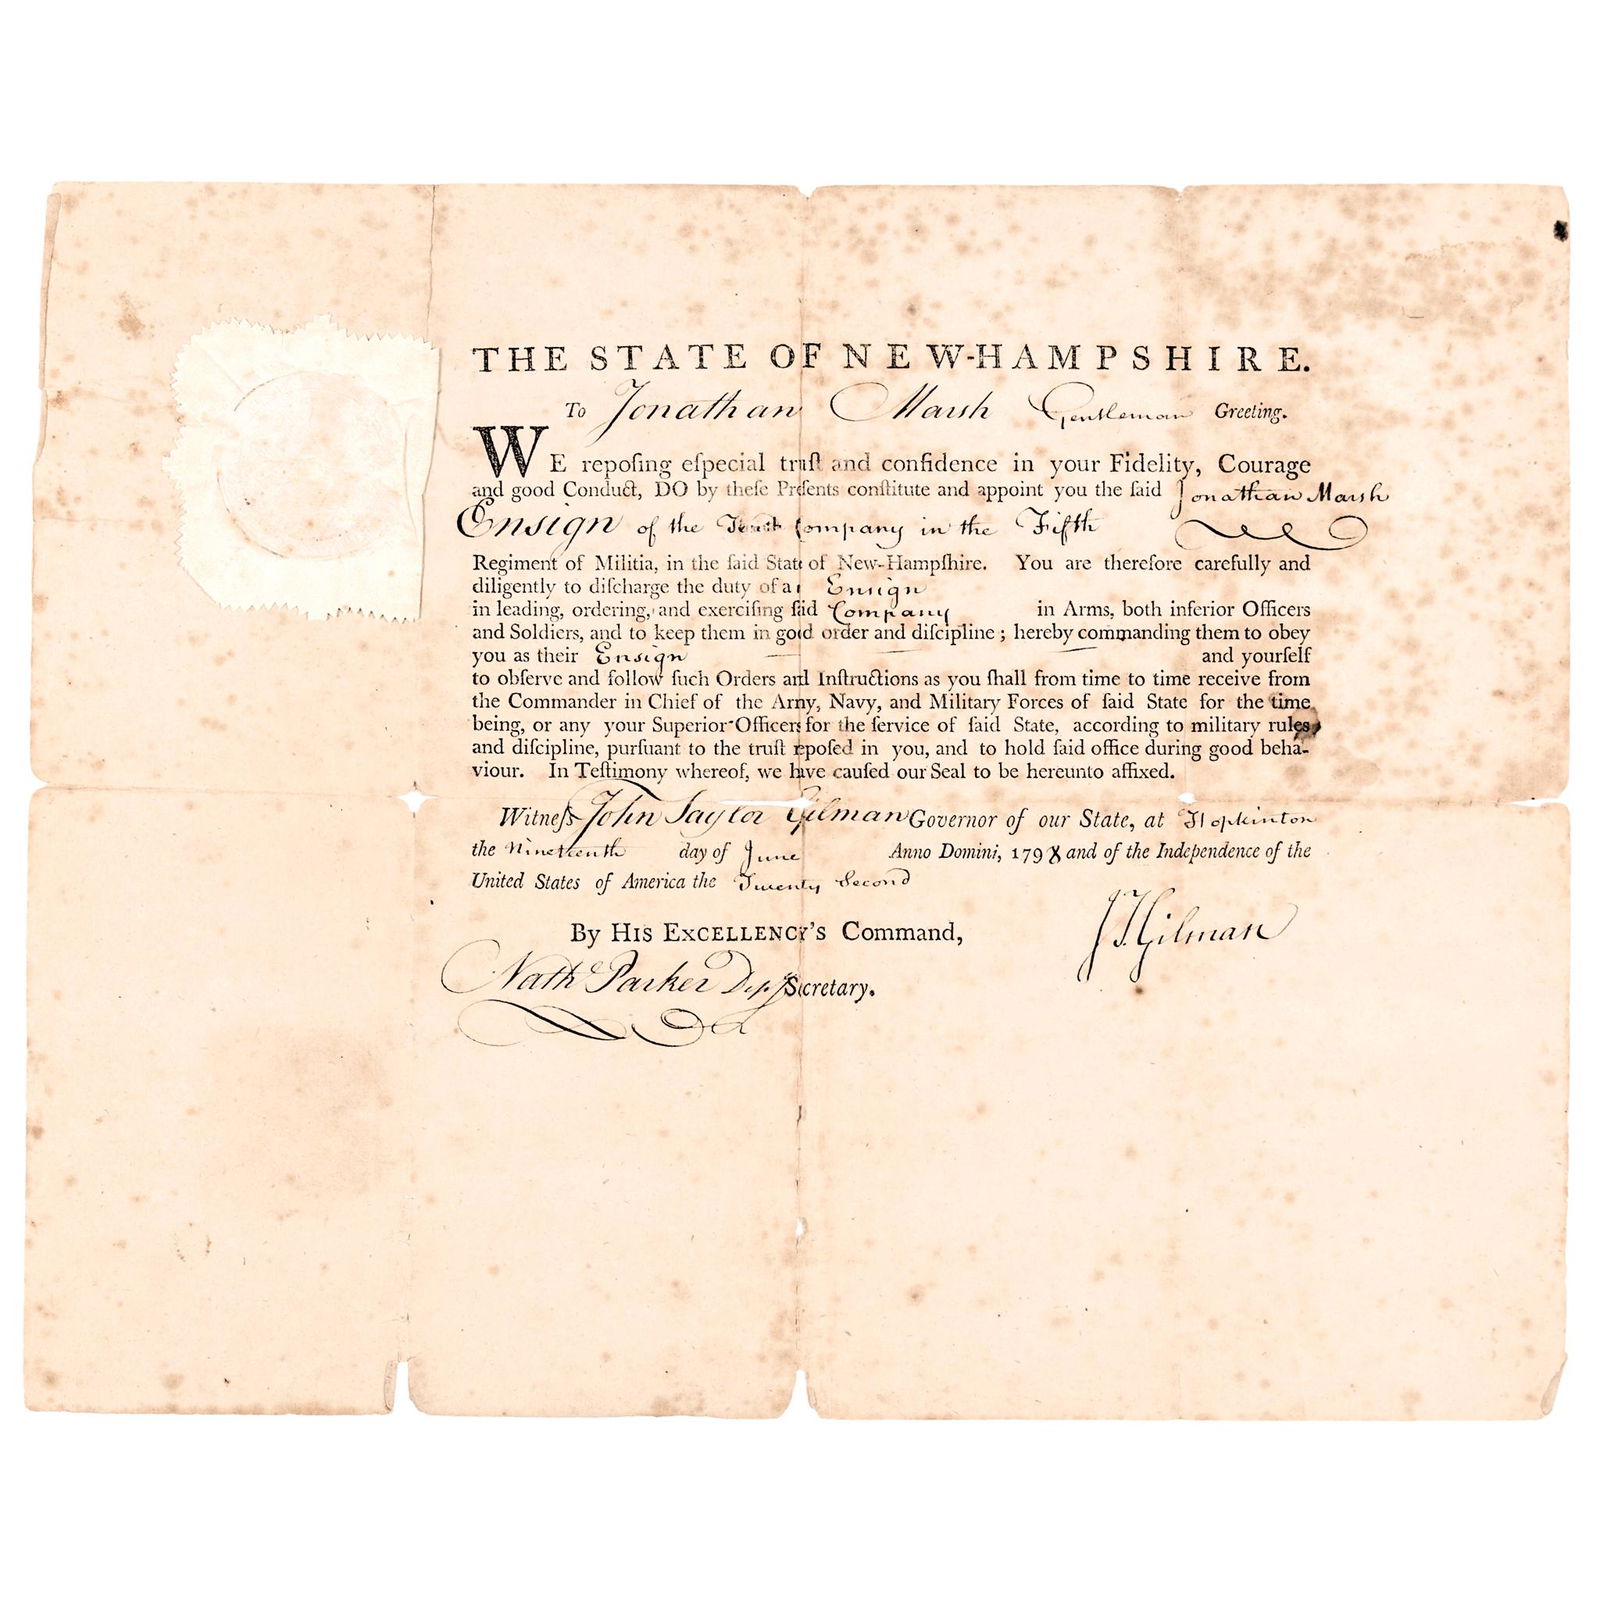 THE STATE OF NEW-HAMPSHIRE.
To Jonathan Marsh Gentleman Greeting.
WE repoſing eſpecial truſt and confidence in your Fidelity, Courage
and good Conduct, DO by theſe Preſents conſtitute and appoint you the ſaid Jonathan Marsh
Ensign of the Company in the Fifth
Regiment of Militia, in the ſaid State of New-Hampſhire. You are therefore carefully and
diligently to diſcharge the duty of a Ensign
in leading, ordering, and exerciſing ſaid Company in Arms, both inferior Officers
and Soldiers, and to keep them in good order and diſcipline ; hereby commanding them to obey
you as their Ensign and yourſelf
to obſerve and follow ſuch Orders and Inſtructions as you ſhall from time to time receive from
the Commander in Chief of the Army, Navy, and Military Forces of ſaid State for the time
being, or any your Superior Officers for the ſervice of ſaid State, according to military rules
and diſcipline, purſuant to the truſt repoſed in you, and to hold ſaid office during good beha-
viour. In Teſtimony whereof, we have cauſed our Seal to be hereunto affixed.
Witneſs John Taylor Gilman Governor of our State, at Hopkinton
the Nineteenth day of June Anno Domini, 1798 and of the Independence of the
United States of America the Twenty Second
By His Excellency's Command,
J T Gilman
Nathl Parker Dep Secretary.